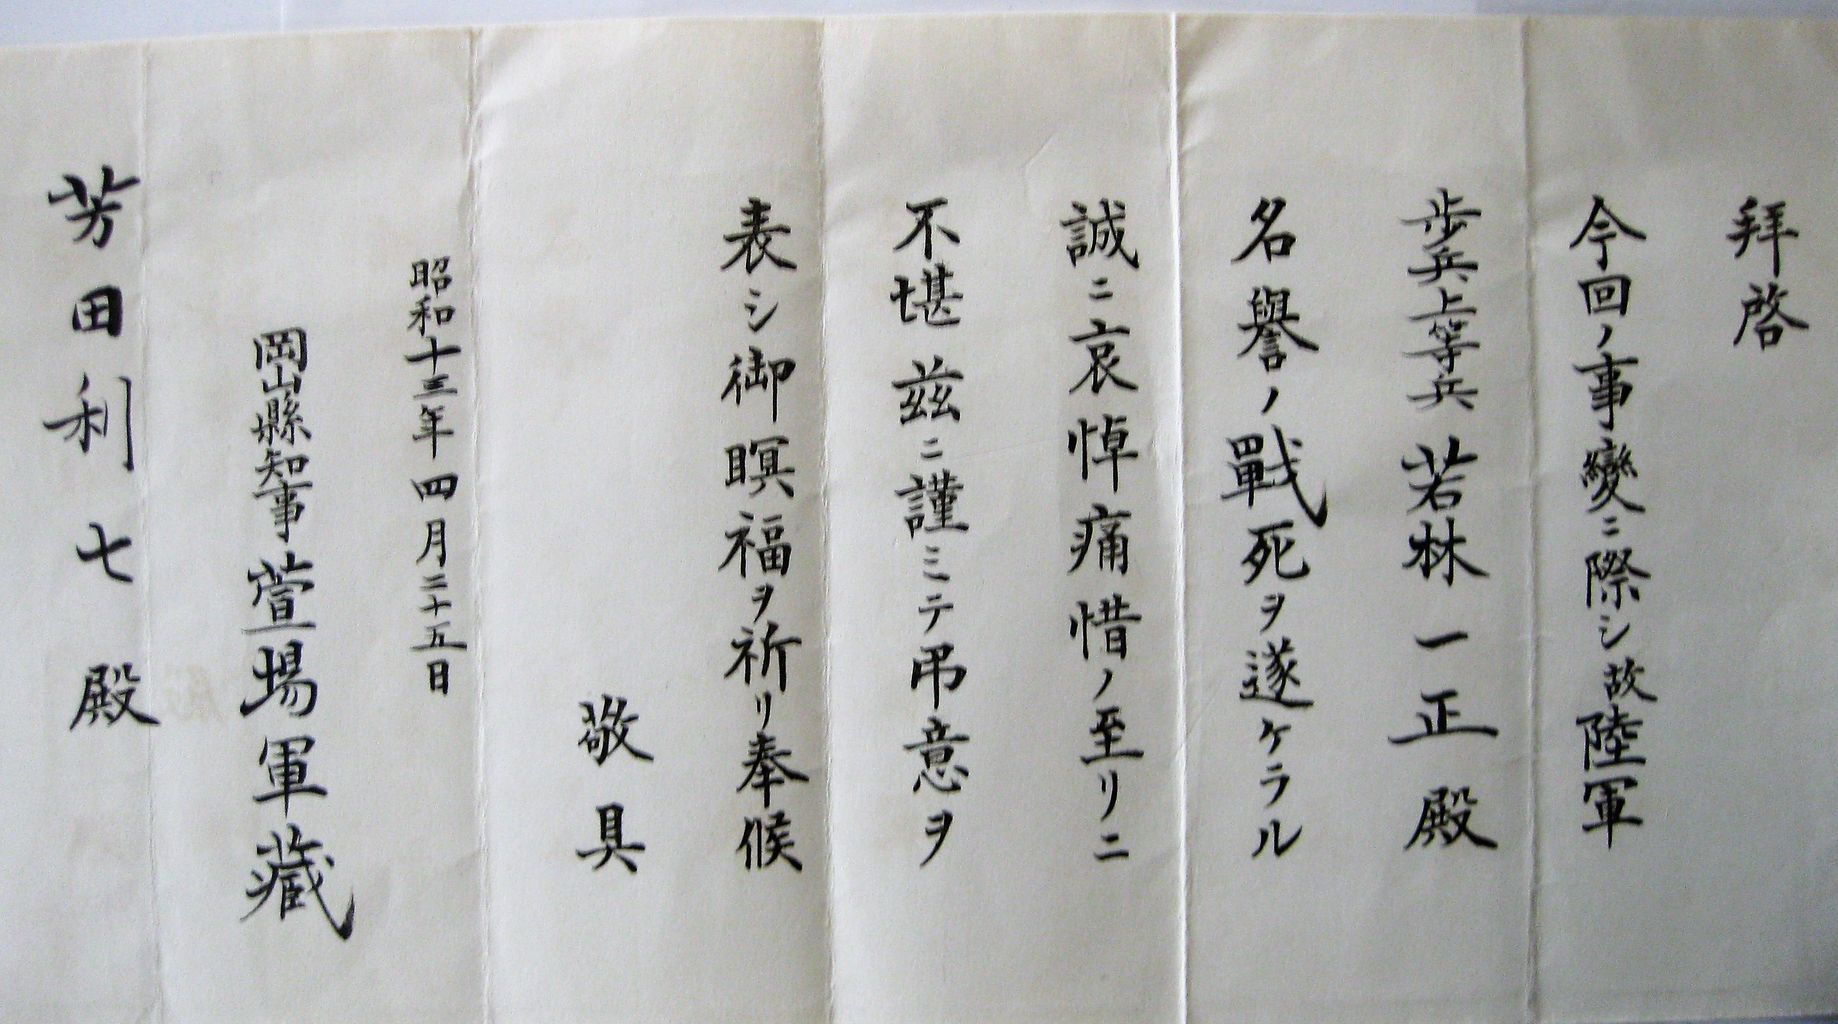 拜啓
今回ノ事變ニ際シ故陸軍
歩兵上等兵若林一正殿
名譽ノ戰死ヲ遂ケラル
誠ニ哀悼痛惜ノ至リニ
不堪茲ニ謹ミテ弔意ヲ
表シ御瞑福ヲ祈リ奉候
敬具
昭和十三年四月二十五日
岡山縣知事萱場軍藏
芳田利七殿